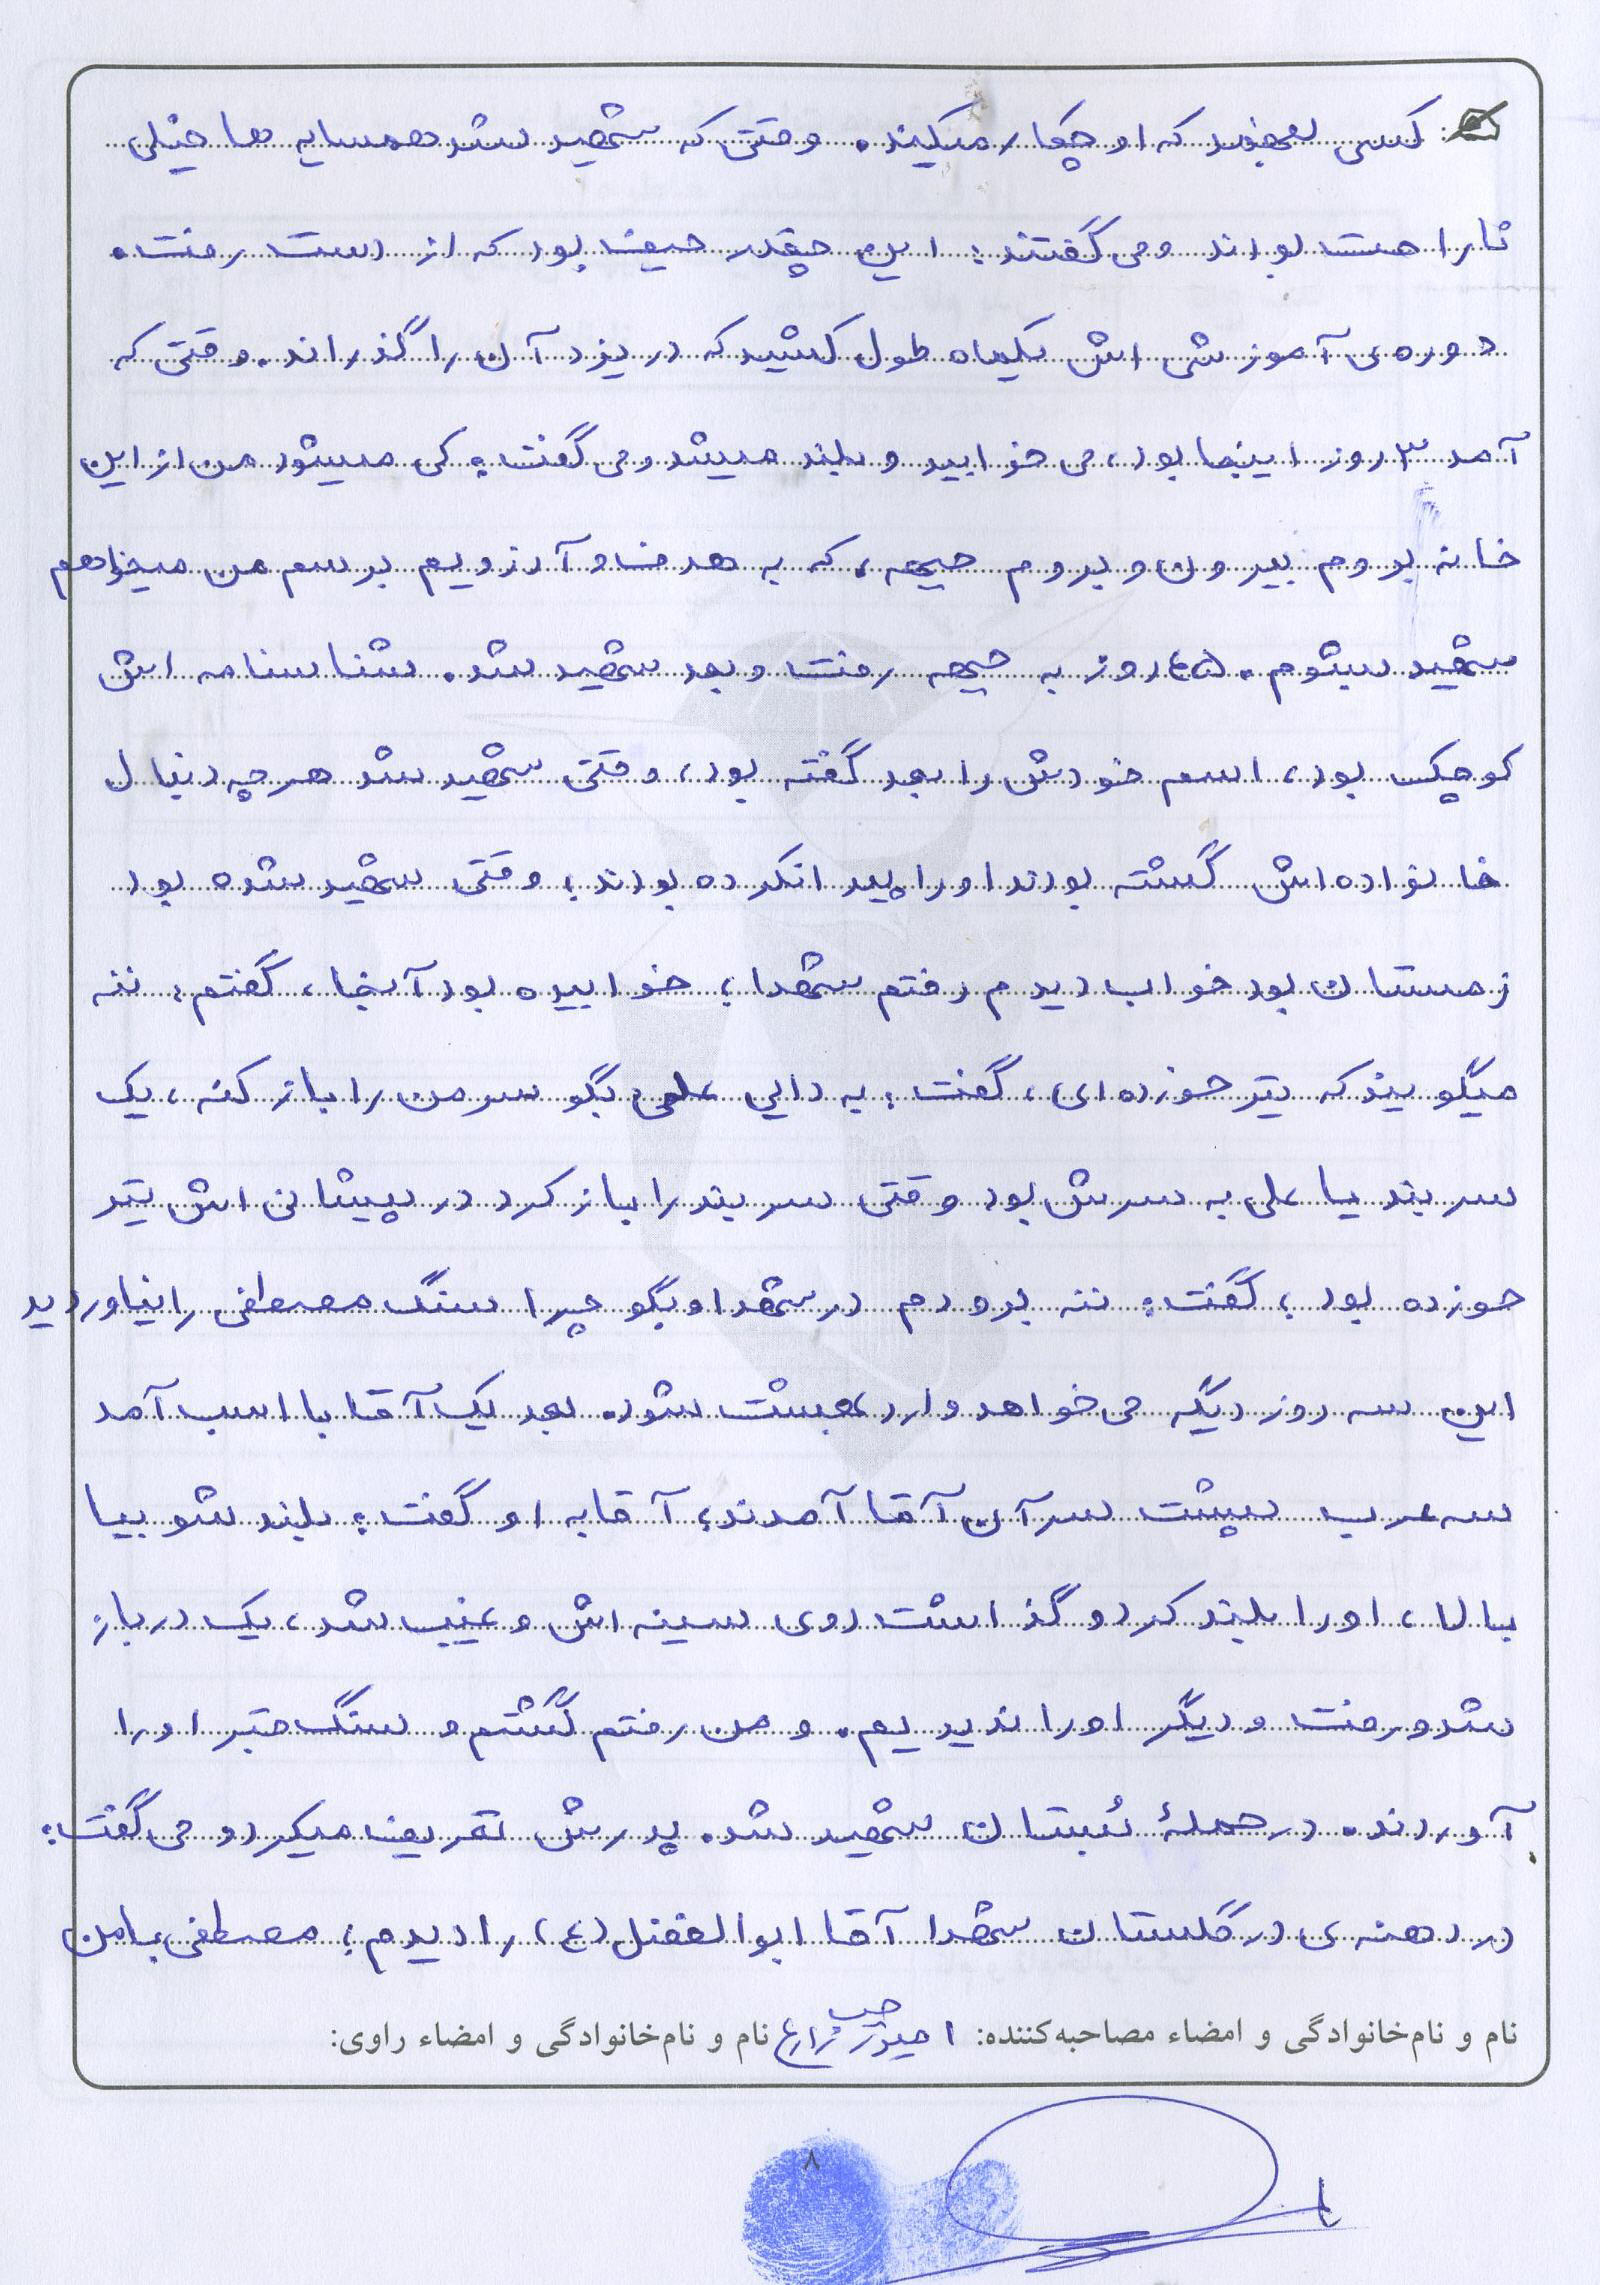 کسی نفهمد که او چکار میکند. وقتی که شهید شد همسایه ها خیلی
ناراحت بودند ومی گفتند: این چقدر حیف بود که از دست رفت.
دوره ی آموزشی اش یکماه طول کشید که در یزد آن را گذراند. وقتی که
آمد ۳ روز اینجا بود، می خوابید و بلند میشد ومی گفت: کی میشود من از این
خانه بروم بیرون و بروم جبهه، که به هدف و آرزویم برسم من میخواهم
شهید بشوم. ۴۵ روز به جبهه رفت و بعد شهید شد. شناسنامه اش
کوچک بود، اسم خودش را بعد گفته بود، وقتی شهید شد هرچه دنبال
خانواده اش گشته بودند او را پیدا نکرده بودند؛ وقتی شهید شده بود
زمستان بود خواب دیدم رفتم شهدا؛ خوابیده بود آنجا، گفتم: ننه
میگویند که تیر خورده ای، گفت: به دایی علی بگو سر من را باز کنه، یک
سربند یا علی به سرش بود وقتی سربند را باز کرد در پیشانی اش تیر
خورده بود؛ گفت: ننه برو دم در شهدا و بگو چرا سنگ مصطفی را نیاوردید
این سه روز دیگه می خواهد وارد بهشت شود. بعد یک آقا با اسب آمد
سه عرب پشت سر آن آقا آمدند؛ آقا به او گفت: بلند شو بیا
بالا، او را بلند کرد و گذاشت روی سینه اش و غیب شد، یک در باز
شد و رفت و دیگر او را ندیدیم. و من رفتم گشتم و سنگ قبر او را
آوردند. در حملهٔ بُستان شهید شد. پدرش تعریف میکرد و می گفت:
در دهنه ی در گلستان شهدا آقا ابوالفضل (ع) را دیدم؛ مصطفی با من
نام و نام‌خانوادگی و امضاء مصاحبه‌کننده: زارع نام و نام‌خانوادگی و امضاء راوی:
۸